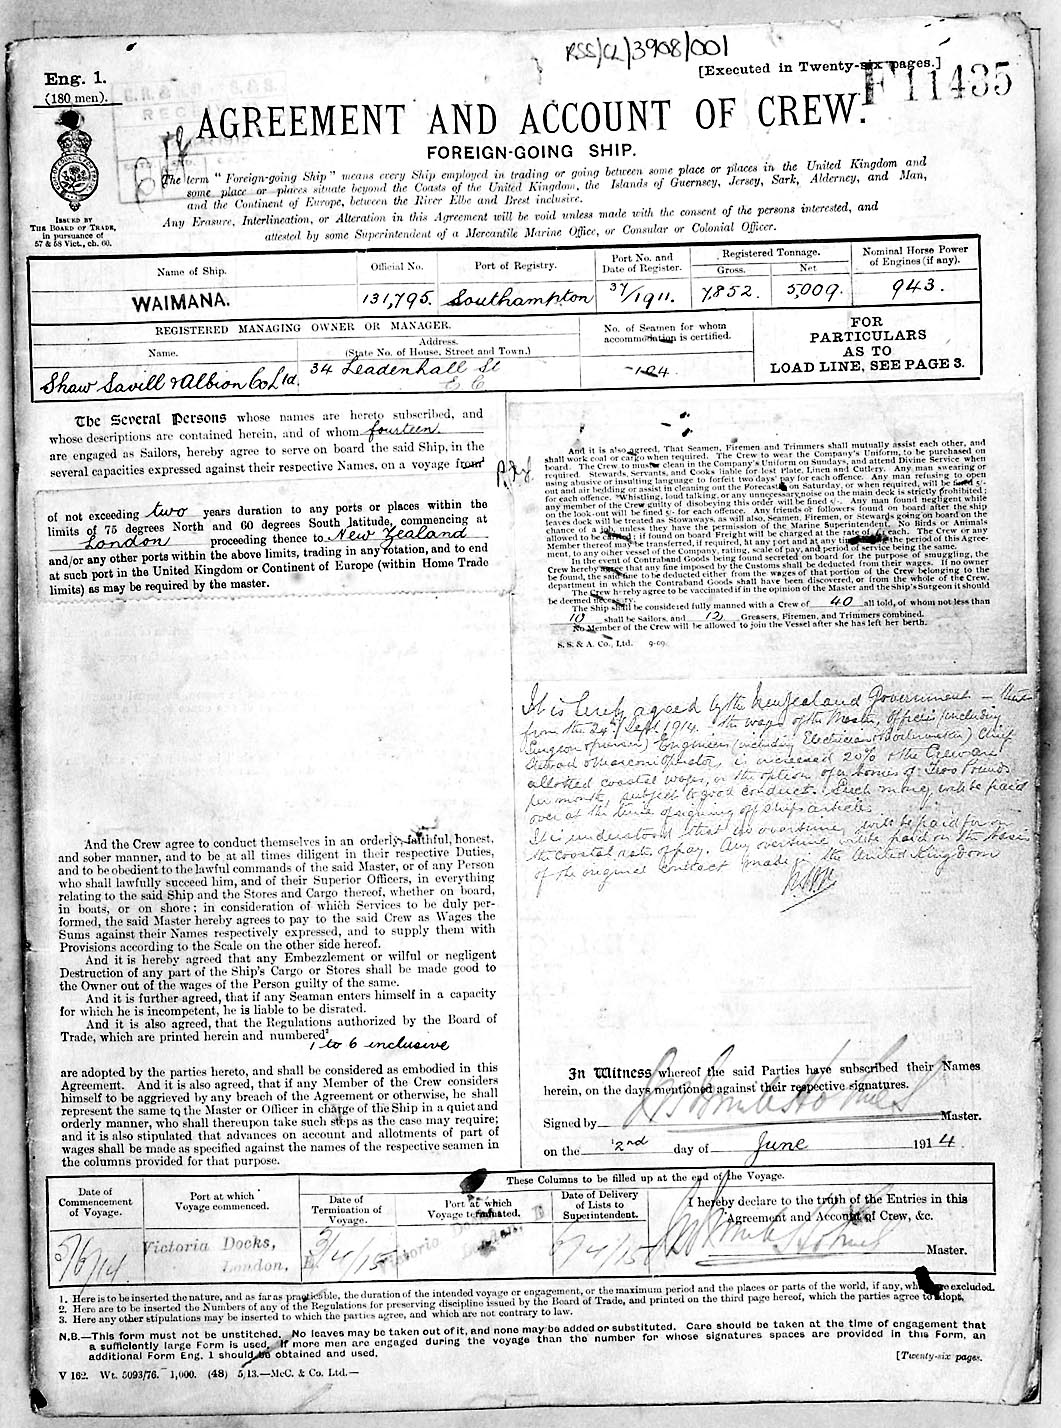 RSS/CL/3908/001
[Executed in Twenty-six pages.]
Eng. 1.
(180 men).
F 11435
AGREEMENT AND ACCOUNT OF CREW.
FOREIGN-GOING SHIP.
The term "Foreign-going Ship" means every Ship employed in trading or going between some place or places in the United Kingdom and
some place or places situate beyond the Coasts of the United Kingdom, the Islands of Guernsey, Jersey, Sark, Alderney, and Man,
and the Continent of Europe, between the River Elbe and Brest inclusive.
Any Erasure, Interlineation, or Alteration in this Agreement will be void unless made with the consent of the persons interested, and
attested by some Superintendent of a Mercantile Marine Office, or Consular or Colonial Officer.
ISSUED BY
THE BOARD OF TRADE,
in pursuance of
57 & 58 Vict., ch. 60.
Name of Ship.
Official No.
Port of Registry.
Port No. and
Date of Register.
Registered Tonnage.
Gross.
Net
Nominal Horse Power
of Engines (if any).
WAIMANA.
131,795.
Southampton
37/1911.
7,852.
5,009.
943.
REGISTERED MANAGING OWNER OR MANAGER.
Name.
Address.
(State No. of House, Street and Town.)
No. of Seamen for whom
accommodation is certified.
FOR
PARTICULARS
AS TO
LOAD LINE, SEE PAGE 3.
Shaw Savill & Albion Co Ltd.
34 Leadenhall St
E C
The Several Persons whose names are hereto subscribed, and
whose descriptions are contained herein, and of whom fourteen.
are engaged as Sailors, hereby agree to serve on board the said Ship, in the
several capacities expressed against their respective Names, on a voyage from
of not exceeding two years duration to any ports or places within the
limits of 75 degrees North and 60 degrees South latitude, commencing at
London proceeding thence to New Zealand
and/or any other ports within the above limits, trading in any rotation, and to end
at such port in the United Kingdom or Continent of Europe (within Home Trade
limits) as may be required by the master.
And the Crew agree to conduct themselves in an orderly, faithful, honest,
and sober manner, and to be at all times diligent in their respective Duties,
and to be obedient to the lawful commands of the said Master, or of any Person
who shall lawfully succeed him, and of their Superior Officers, in everything
relating to the said Ship and the Stores and Cargo thereof, whether on board,
in boats, or on shore; in consideration of which Services to be duly per-
formed, the said Master hereby agrees to pay to the said Crew as Wages the
Sums against their Names respectively expressed, and to supply them with
Provisions according to the Scale on the other side hereof.
And it is hereby agreed that any Embezzlement or wilful or negligent
Destruction of any part of the Ship's Cargo or Stores shall be made good to
the Owner out of the wages of the Person guilty of the same.
And it is further agreed, that if any Seaman enters himself in a capacity
for which he is incompetent, he is liable to be disrated.
And it is also agreed, that the Regulations authorized by the Board of
Trade, which are printed herein and numbered²
1 to 6 inclusive
are adopted by the parties hereto, and shall be considered as embodied in this
Agreement. And it is also agreed, that if any Member of the Crew considers
himself to be aggrieved by any breach of the Agreement or otherwise, he shall
represent the same to the Master or Officer in charge of the Ship in a quiet and
orderly manner, who shall thereupon take such steps as the case may require;
and it is also stipulated that advances on account and allotments of part of
wages shall be made as specified against the names of the respective seamen in
the columns provided for that purpose.
And it is also agreed, That Seamen, Firemen and Trimmers shall mutually assist each other, and
shall work coal or cargo when required. The Crew to wear the Company's Uniform, to be purchased on
board. The Crew to muster clean in the Company's Uniform on Sundays, and attend Divine Service when
required. Stewards, Servants, and Cooks liable for lost Plate, Linen and Cutlery. Any man swearing or
using abusive or insulting language to forfeit two days' pay for each offence. Any man refusing to open
out and air bedding or assist in cleaning out the Forecastle on Saturday, or when required, will be fined 5/-
for each offence. Whistling, loud talking, or any unnecessary noise on the main deck is strictly prohibited;
any member of the Crew guilty of disobeying this order will be fined 5/-. Any man found negligent while
on the look-out will be fined 5/- for each offence. Any friends or followers found on board after the ship
leaves dock will be treated as Stowaways, as will also, Seamen, Firemen, or Stewards going on board on the
chance of a job, unless they have the permission of the Marine Superintendent. No Birds or Animals
allowed to be carried; if found on board Freight will be charged at the rate of each. The Crew or any
Member thereof may be transferred, if required, at any port and at any time the period of this Agree-
ment, to any other vessel of the Company, rating, scale of pay, and period of service being the same.
In the event of Contraband Goods being found secreted on board for the purpose of smuggling, the
Crew hereby agree that any fine imposed by the Customs shall be deducted from their wages. If no owner
be found, the said fine to be deducted either from the wages of that portion of the Crew belonging to the
department in which the Contraband Goods shall have been discovered, or from the whole of the Crew.
The Crew hereby agree to be vaccinated if in the opinion of the Master and the Ship's Surgeon it should
be deemed necessary.
The Ship shall be considered fully manned with a Crew of 40 all told, of whom not less than
10 shall be Sailors, and 12 Greasers, Firemen, and Trimmers combined.
No Member of the Crew will be allowed to join the Vessel after she has left her berth.
S. S. & A. Co., Ltd. 9-09.
It is hereby agreed by the New Zealand Government - that
from the 24th Sept 1914 the wages of the Master, Officers (including
Surgeon & Purser) Engineers (including Electrician & Boilermaker) Chief
Steward & Marconi Operator, is increased 20% & the Crew are
allotted coastal wages, or the option of a bonus of Two Pounds
per month subject to good conduct. Such money will be paid
over at the time of signing off ship's articles.
It is understood that no overtime will be paid for on
the coastal rate of pay. Any overtime will be paid on the basis
of the original contract made in the United Kingdom
In Witness whereof the said Parties have subscribed their Names
herein, on the days mentioned against their respective signatures.
Signed by Master.
on the 2nd day of June 1914.
These Columns to be filled up at the end of the Voyage.
Date of
Commencement
of Voyage.
Port at which
Voyage commenced.
Date of
Termination of
Voyage.
Port at which
Voyage terminated.
Date of Delivery
of Lists to
Superintendent.
I hereby declare to the truth of the Entries in this
Agreement and Account of Crew, &c.
Master.
5/6/14
Victoria Docks,
London,
3/4/15
6/4/15
1. Here is to be inserted the nature, and as far as practicable, the duration of the intended voyage or engagement, or the maximum period and the places or parts of the world, if any, which are excluded.
2. Here are to be inserted the Numbers of any of the Regulations for preserving discipline issued by the Board of Trade, and printed on the third page hereof, which the parties agree to adopt.
3. Here any other stipulations may be inserted to which the parties agree, and which are not contrary to law.
N.B.—This form must not be unstitched. No leaves may be taken out of it, and none may be added or substituted. Care should be taken at the time of engagement that
a sufficiently large Form is used. If more men are engaged during the voyage than the number for whose signatures spaces are provided in this Form, an
additional Form Eng. 1 should be obtained and used.
[Twenty-six pages.
V 162. Wt. 5093/76. 1,000. (48) 5,13.—McC. & Co. Ltd.—